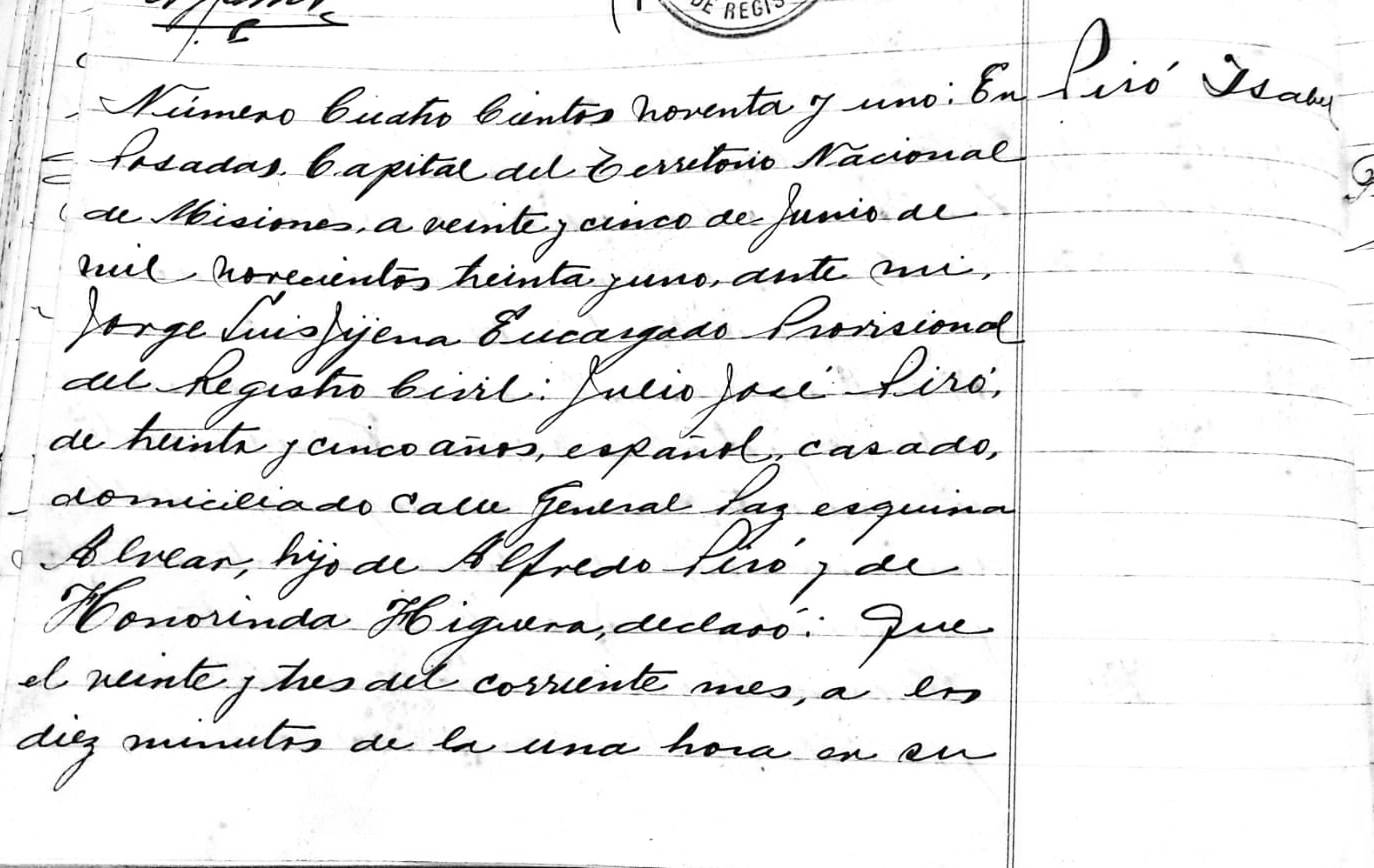 DE REGIS
Número Cuatro Cientos noventa y uno: En
Posadas. Capital del Territorio Nacional
de Misiones, a veinte y cinco de Junio de
mil novecientos treinta y uno, ante mi,
Jorge Luis Jijena Encargado Provisional
del Registro Civil: Julio José Piró,
de treinta y cinco años, español, casado,
domiciliado calle General Paz esquina
Alvear, hijo de Alfredo Piró y de
Honorinda Higuera, declaró: Que
el veinte y tres del corriente mes, a los
diez minutos de la una hora en su
Piró Isabel